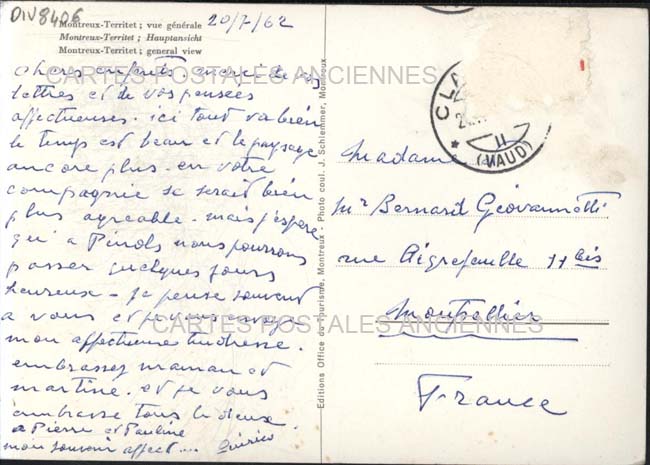 DIV8406
Montreux-Territet ; vue générale
Montreux-Territet ; Hauptansicht
Montreux-Territet ; general view
20/7/62
chers enfants. merci de vos
lettres et de vos pensées
affectueuses. ici tout va bien
le temps est beau et le paysage
encore plus. en votre
compagnie se serait bien
plus agreable. mais j'espère
qu'a Pinols nous pourrons
passer quelques jours
heureux - je pense souvent
a vous et je vous envoye
mon affectueuse tendresse.
embrassez maman et
martine. et je vous
embrasse tous le deux.
a Pierre et Pauline
mon souvenir affect...
CARTES POSTALES ANCIENNES
CARTES POSTALES ANCIENNES
Editions Office du Tourisme, Montreux - Photo coul. J. Schlemmer, Montreux
CLA
II
(VAUD)
Madame
Mr Bernard Géovannetti
rue Aigrefeuille 11 bis
Montpellier
France